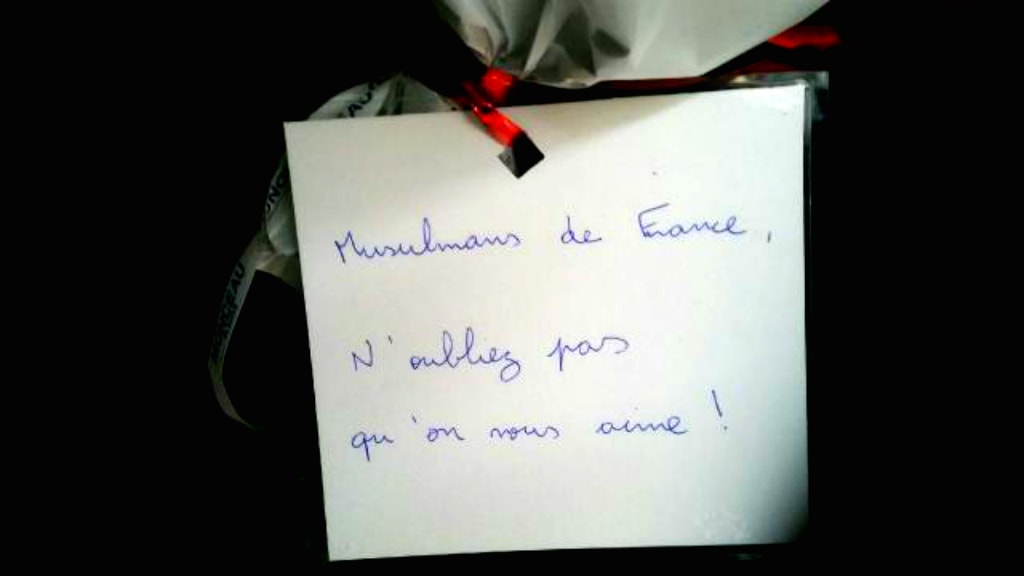 Musulmans de France,
N'oubliez pas
qu'on vous aime !